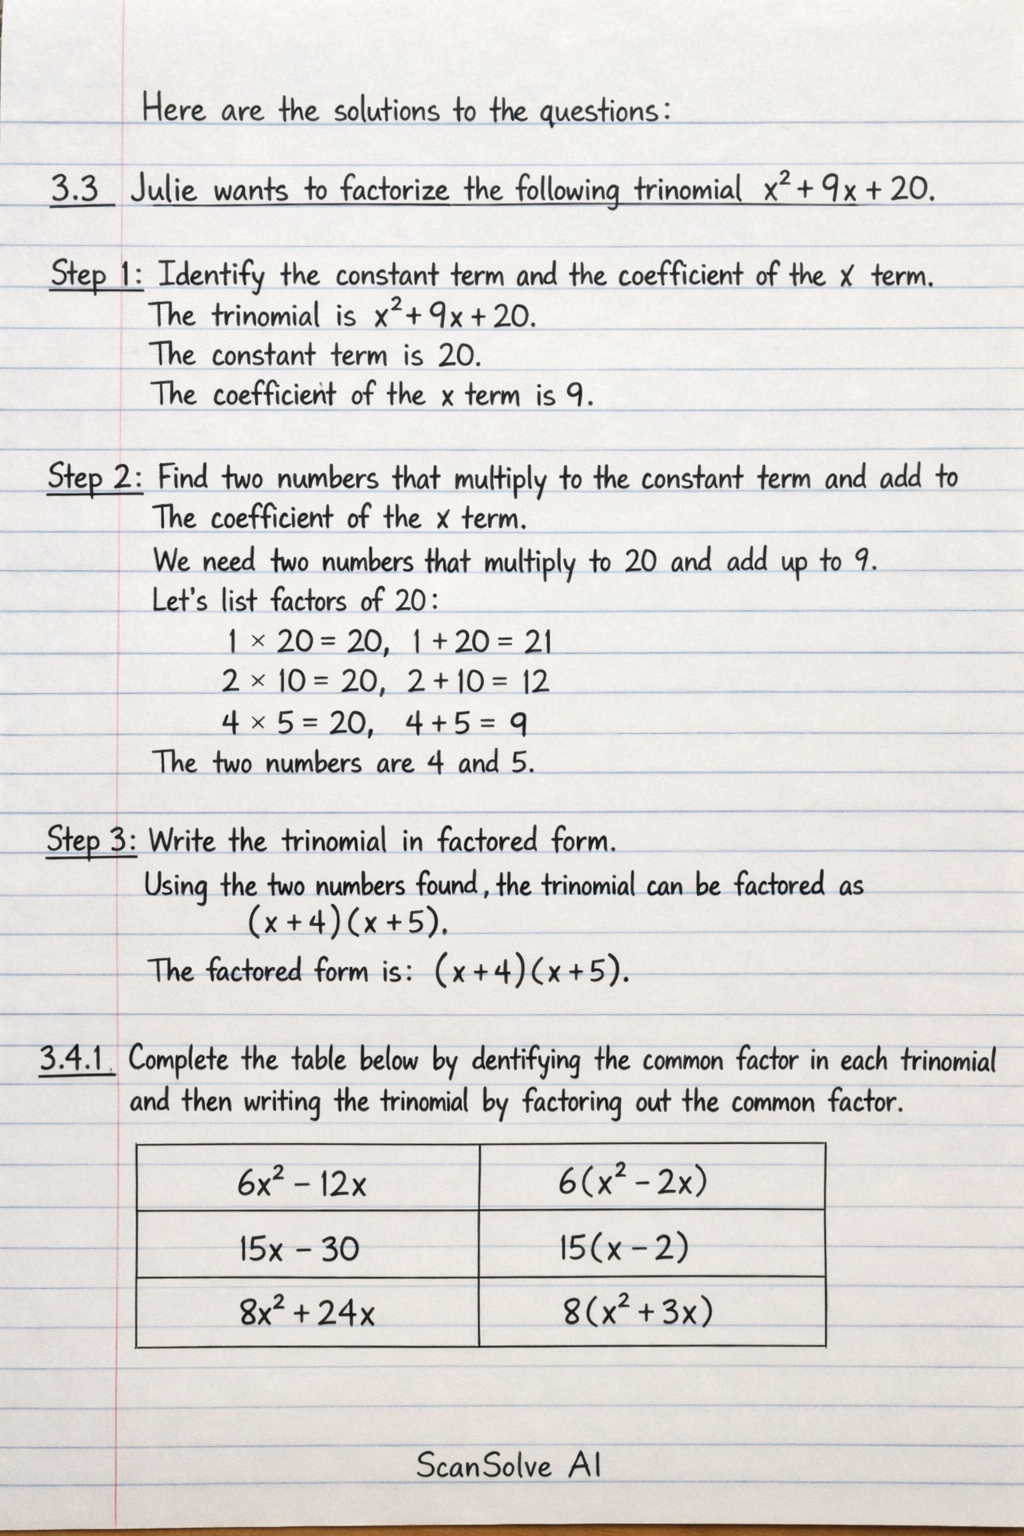 Here are the solutions to the questions:
3.3 Julie wants to factorize the following trinomial x² + 9x + 20.
Step 1: Identify the constant term and the coefficient of the x term.
The trinomial is x² + 9x + 20.
The constant term is 20.
The coefficient of the x term is 9.
Step 2: Find two numbers that multiply to the constant term and add to
The coefficient of the x term.
We need two numbers that multiply to 20 and add up to 9.
Let's list factors of 20:
1 × 20 = 20, 1 + 20 = 21
2 × 10 = 20, 2 + 10 = 12
4 × 5 = 20, 4 + 5 = 9
The two numbers are 4 and 5.
Step 3: Write the trinomial in factored form.
Using the two numbers found, the trinomial can be factored as
(x + 4)(x + 5).
The factored form is: (x + 4)(x + 5).
3.4.1 Complete the table below by dentifying the common factor in each trinomial
and then writing the trinomial by factoring out the common factor.
6x² − 12x 6(x² − 2x)
15x − 30 15(x − 2)
8x² + 24x 8(x² + 3x)
ScanSolve AI